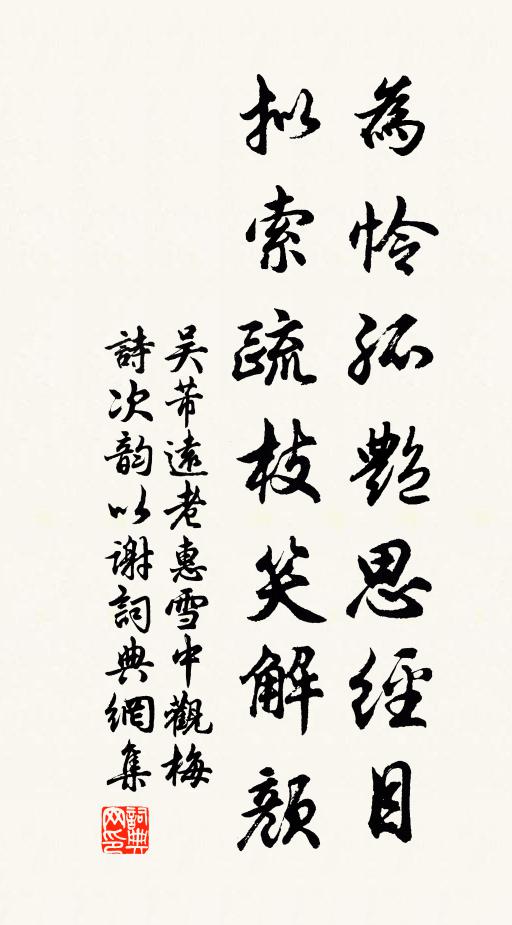 為怜孤艷思經目
拟索疏枝笑解顏
吴芾遠老惠雪中觀梅
詩次韵以谢詞典網集
詞典网印